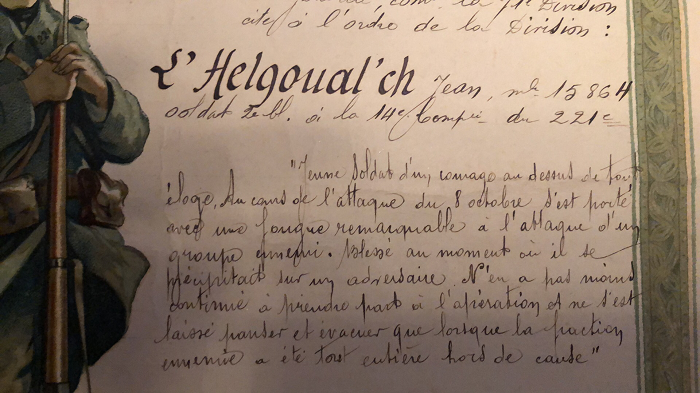 com. la 71e Division
cite à l'ordre de la Division :
L'Helgoual'ch Jean, mle 15864
soldat 2e Cl. à la 14e Compie du 221e
"Jeune soldat d'un courage au dessus de tout
éloge. Au cours de l'attaque du 8 octobre s'est porté
avec une fougue remarquable à l'attaque d'un
groupe ennemi. Blessé au moment où il se
précipitait sur un adversaire, N'en a pas moins
continué à prendre part à l'opération et ne s'est
laissé panser et évacuer que lorsque la fraction
ennemie a été tout entière hors de cause"